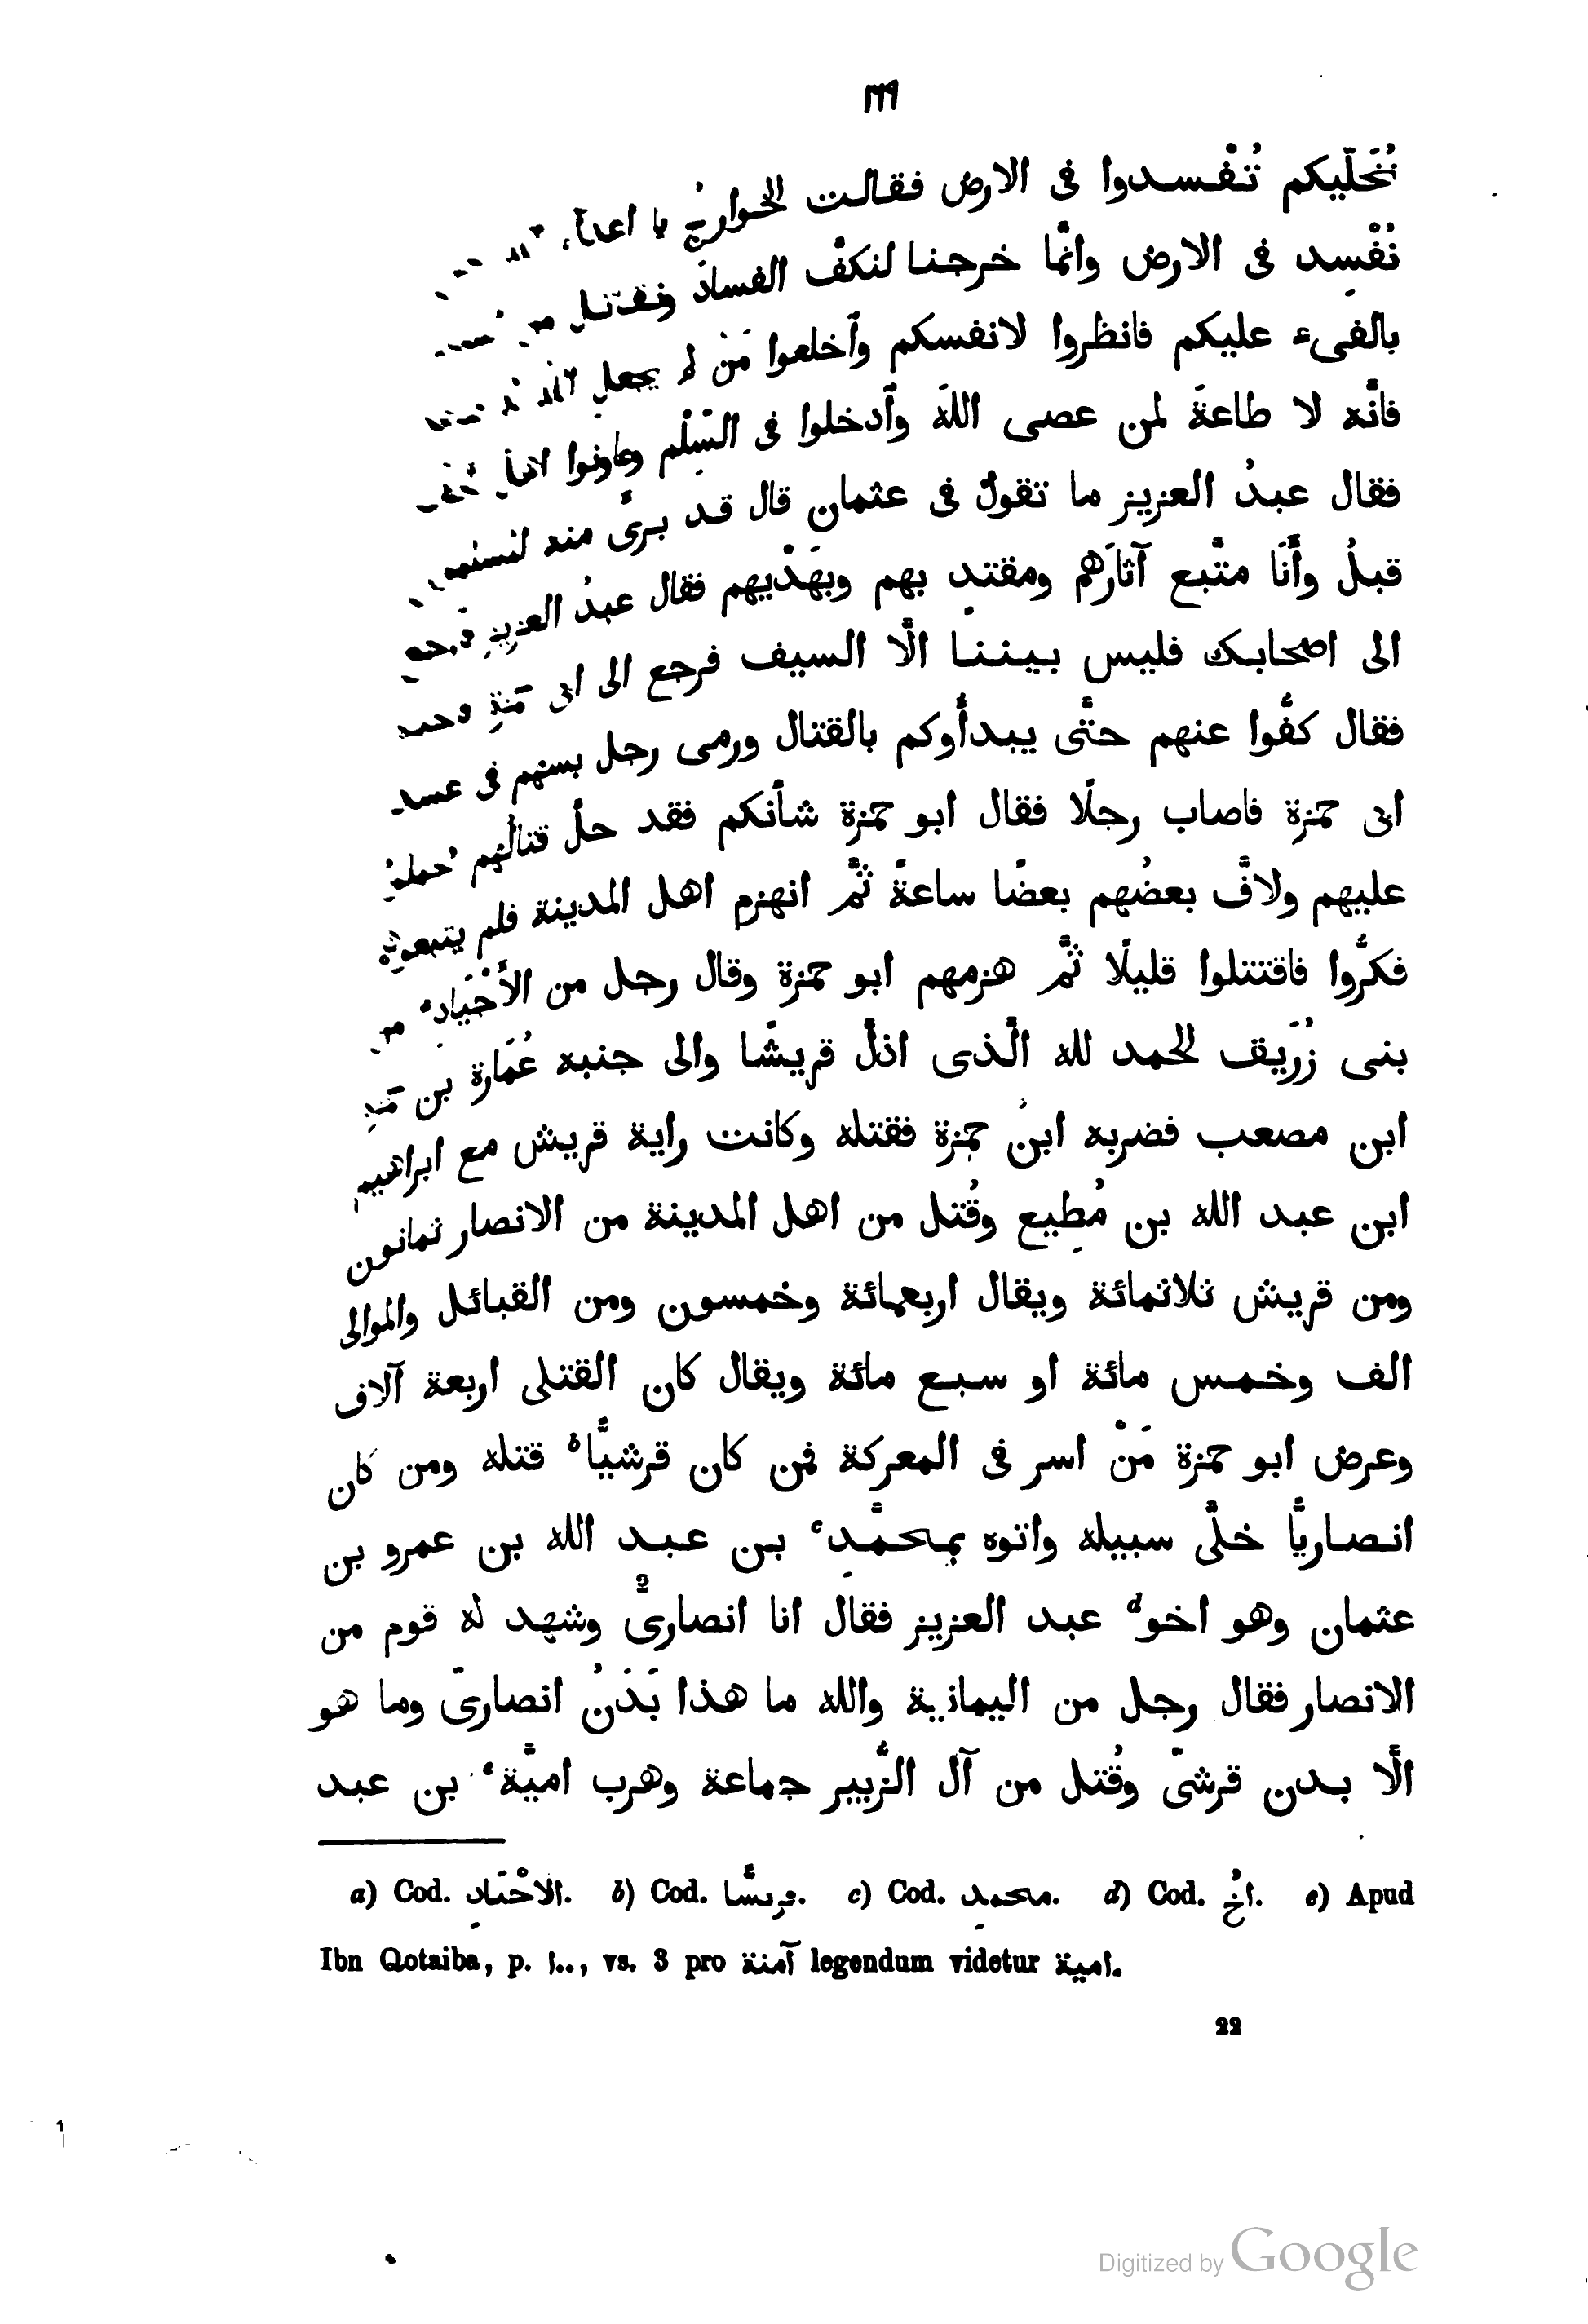 ١٦٩
نُخَلّيكم تُفْسدوا فى الارض فقالت الخوارجُ يا اعداء
نُفْسِد فى الارض وانّما خرجنا لنكفّ الفسادَ ونقتل
بالفىء عليكم فانظروا لانفسكم وٱخلعوا مَنْ لم يجعل
فانّه لا طاعةَ لمن عصى اللهَ وٱدخلوا فى السِّلْم وعاونوا اهل
فقال عبدُ العزيز ما تقولُ فى عثمان قال قد برئ منه المسلمون
قبلُ وأَنَا متّبع آثارَهم ومقتدٍ بهم وبهَدْيهم فقال عبدُ العزيز فارجع
الى اصحابك فليس بيننا الّا السيف فرجع الى ابى حمزة
فقال كفُّوا عنهم حتّى يبدأُوكم بالقتال ورمى رجل بسهم فى عسكر
ابى حمزة فاصاب رجلًا فقال ابو حمزة شأنكم فقد حلّ قتالُهم فحملوا
عليهم ولافّ بعضُهم بعضًا ساعةً ثمّ انهزم اهل المدينة فلم يتبعوهم
فكرُّوا فاقتتلوا قليلًا ثمّ هزمهم ابو حمزة وقال رجل من الأَخْيَار a من
بنى زُرَيق الحمد لله الّذى اذلّ قريشًا والى جنبه عُمَارة بن حمزة
ابن مصعب فضربه ابنُ حمزة فقتله وكانت راية قريش مع ابراهيم
ابن عبد الله بن مُطِيع وقُتل من اهل المدينة من الانصار ثمانون
ومن قريش ثلاثمائة ويقال اربعمائة وخمسون ومن القبائل والموالى
الف وخمس مائة او سبع مائة ويقال كان القتلى اربعة آلاف
وعرض ابو حمزة مَنْ اسر فى المعركة فمن كان قرشيًّا b قتله ومن كان
انصاريًّا خلّى سبيله واتوه بمحمّدِ c بن عبد الله بن عمرو بن
عثمان وهو اخو d عبد العزيز فقال انا انصارىٌّ وشهد له قوم من
الانصار فقال رجل من اليمانية والله ما هذا بَدَنُ انصارىّ وما هو
الّا بدن قرشىّ وقُتل من آل الزُّبير جماعة وهرب اميّة e بن عبد
a) Cod. الاحْتَادِ. b) Cod. مرىشًّا. c) Cod. محمدِ. d) Cod. اخُ. e) Apud
Ibn Qotaiba, p. ١٠٠, vs. 3 pro آمنة legendum videtur امية.
22
Digitized by Google